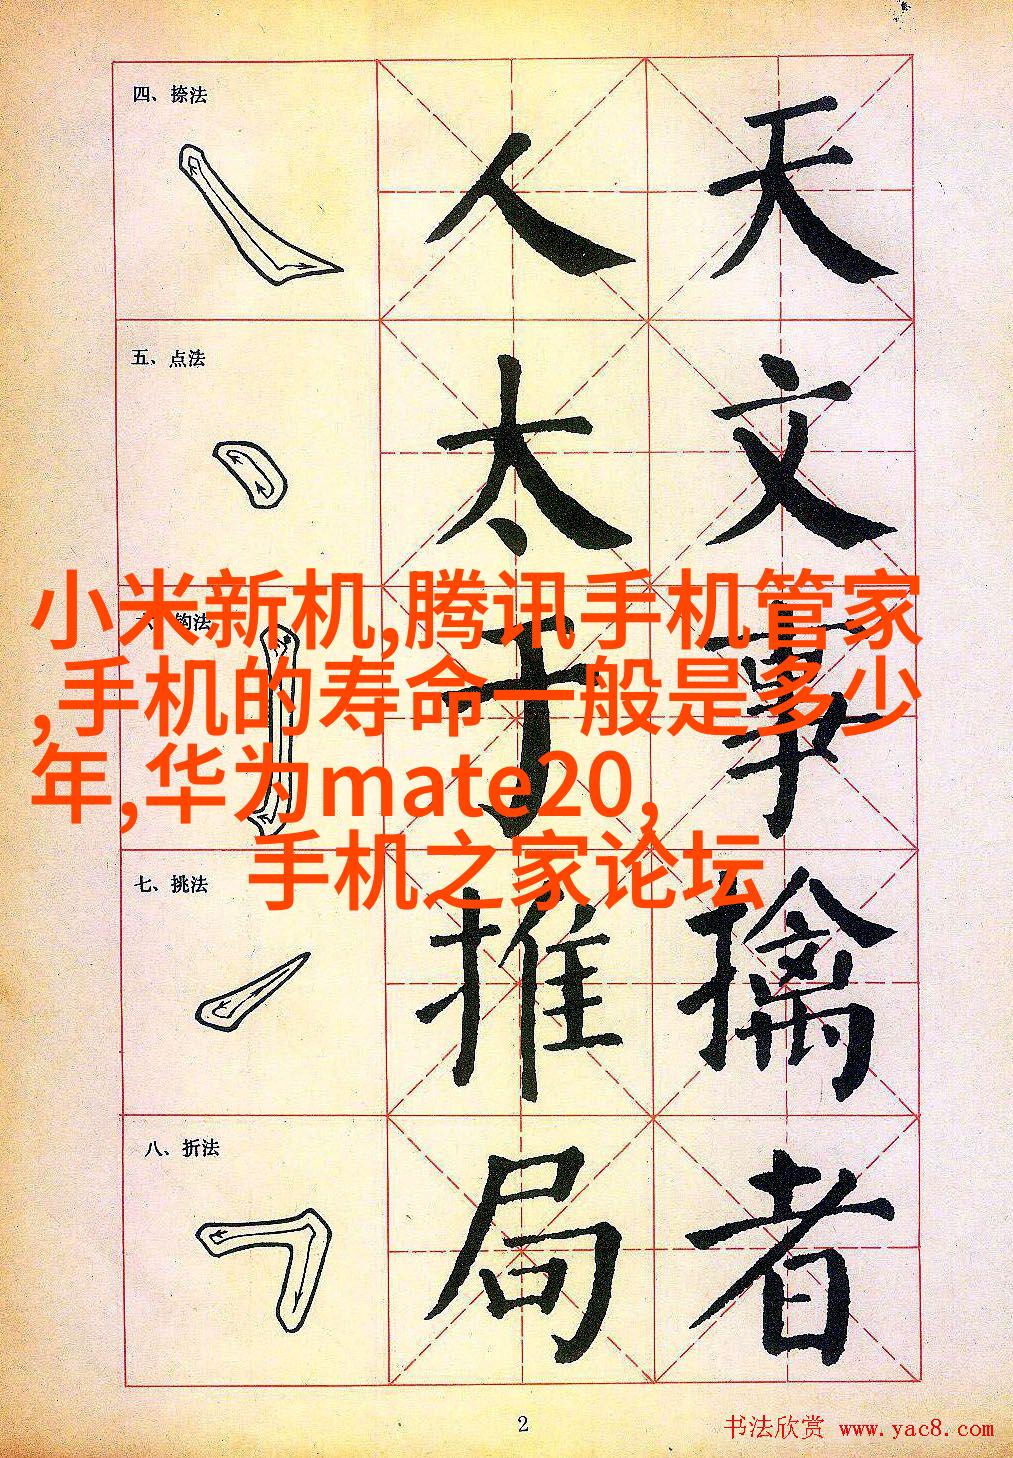 四、捺法
人 天
五、点法
太 文
小米新机,腾讯手机管家
,手机的寿命一般是多少
年,华为mate20,
手机之家论坛
钩法
于 事
七、挑法
推 擒
八、折法
局 者
2
书法欣赏 www.yac8.com